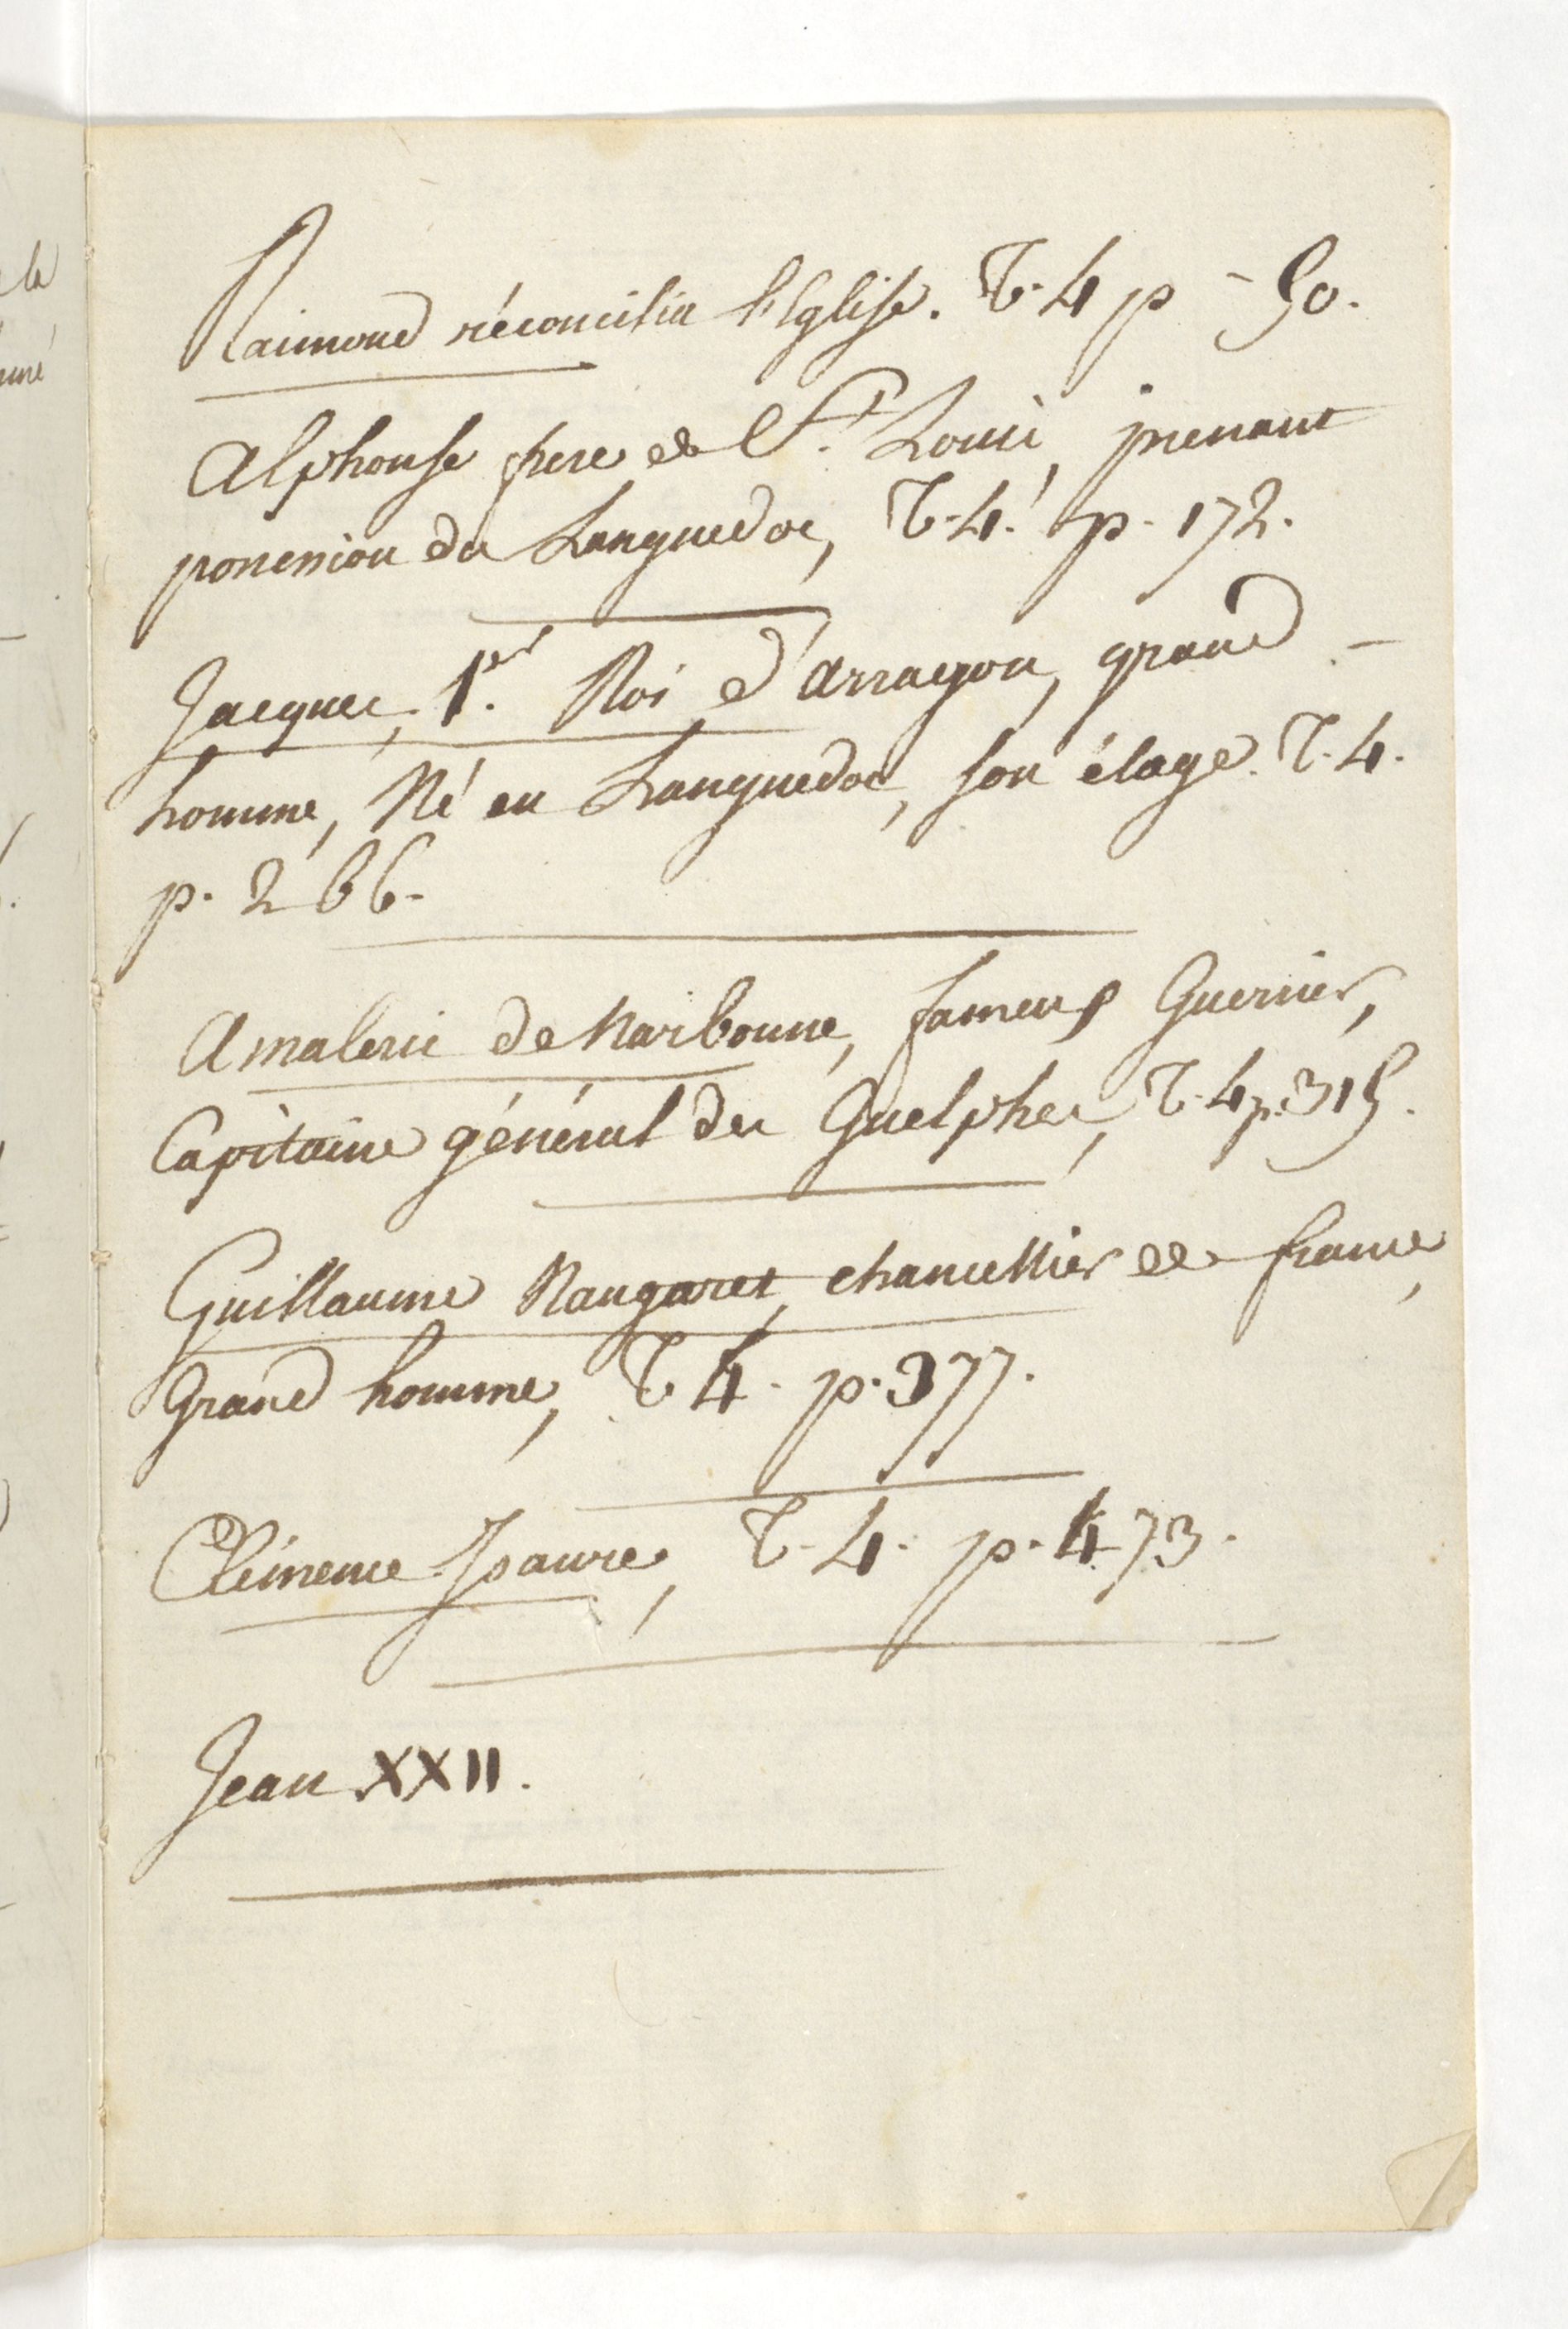 Raimond réconcilia l'Eglise. T. 4 p - 50.
Alphonse frere de St. Louis, prenant
possession du Languedoc, T. 4. p. 172.
Jacques, 1.er Roi d'Arragon, grand -
homme, Né en Languedoc, son éloge. T. 4.
p. 266.
Amaleric de Narbonne, fameux Guerrier,
Capitaine général des Guelphes, T. 4 p. 315.
Guillaume Naugaret, chancellier de france,
Grand homme, T 4. p. 377.
Clémence Isaure, T. 4. p. 473.
Jean XXII.